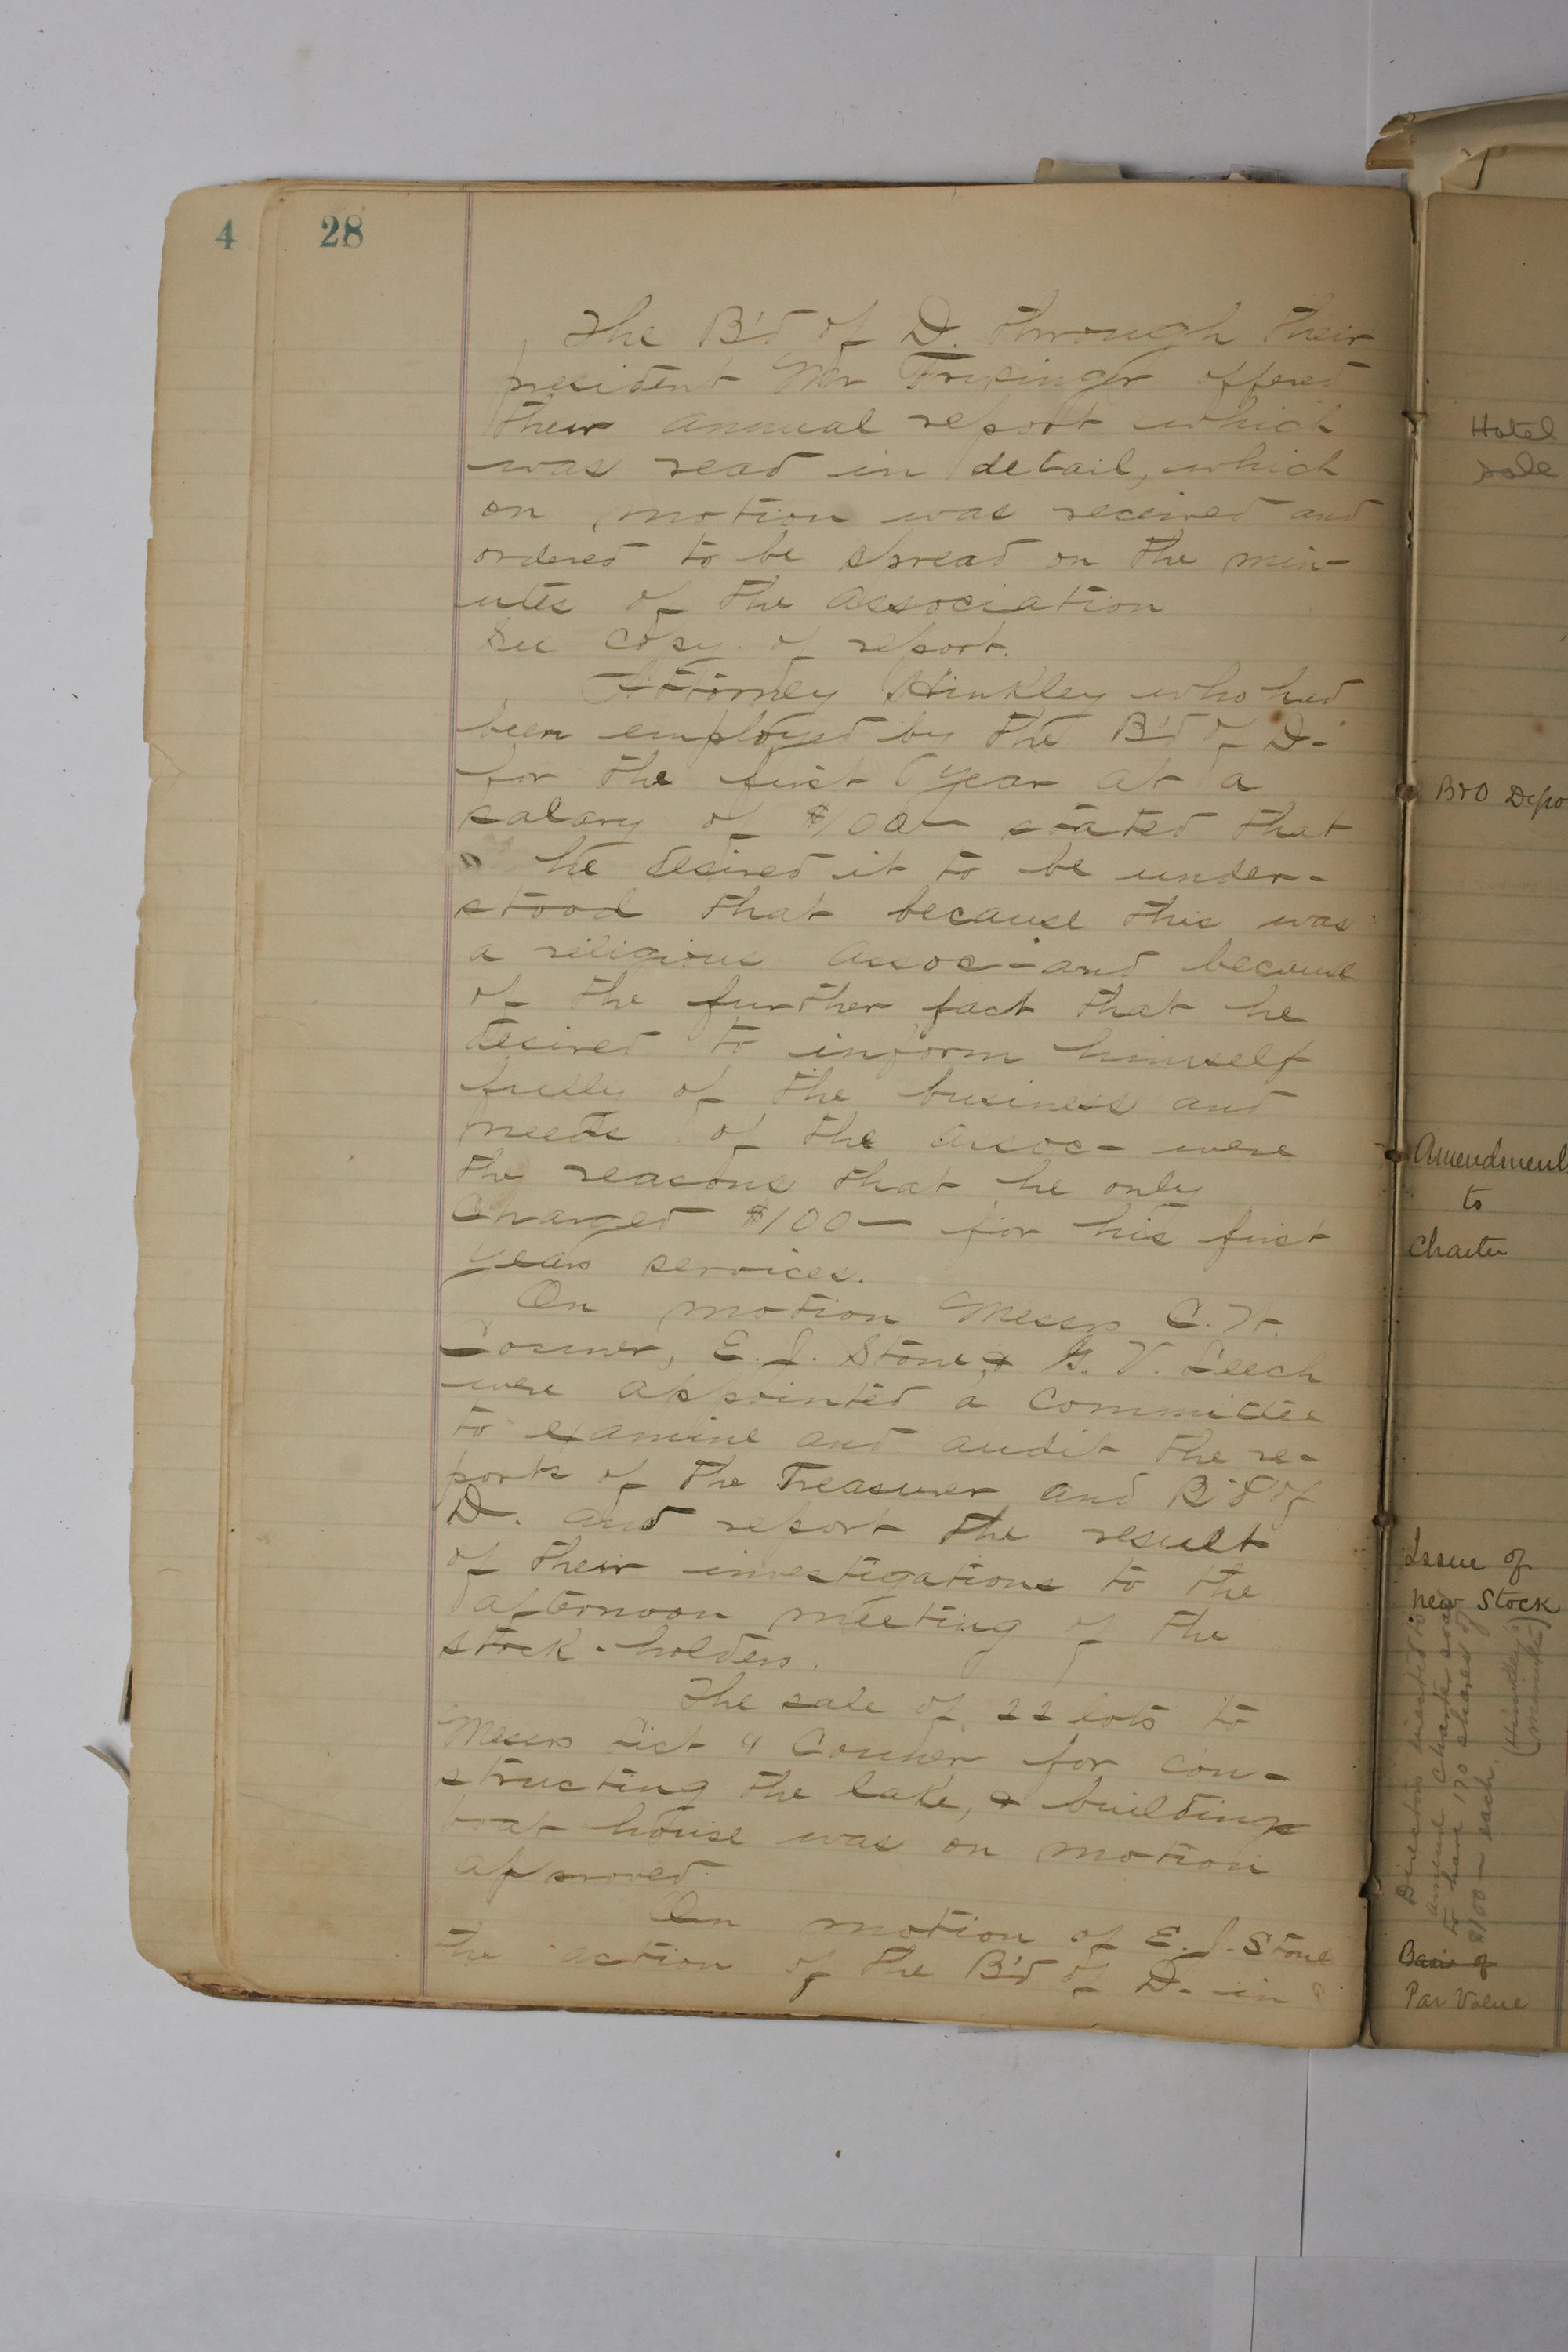 4 28
The B'd of D. through their
president Mr Truxinger offered
their annual report which
was read in detail, which
on motion was received and
ordered to be spread on the min-
utes of the association
See copy. of report.
Attorney Hinkley who had
been employed by the B'd of D-
for the first year at a
salary of $100- stated that
he desired it to be under-
stood that because this was
a religious assoc- and because
of the further fact that he
desired to inform himself
fully of the business and
needs of the assoc- were
the reasons that he only
charged $100- for his first
years services.
On motion Messrs C. W.
Conner, E. J. Stone & G. V. Leech
were appointed a committee
to examine and audit the re-
ports of the Treasurer and B'd of
D. and report the result
of their investigations to the
afternoon meeting of the
stock-holders.
The sale of 22 lots to
Messrs List & Conner for con-
structing the lake, & buildings
boat house was on motion
approved.
On motion of E. J. Stone
the action of the B'd of D. in
Hotel
sale
B&O Depo
Amendment
to
Charter
Issue of
new Stock
Directors directed to
amend Charter so as
to have 170 shares of
$100- each. (Hinkley's
minute)
Basis of
Par Value